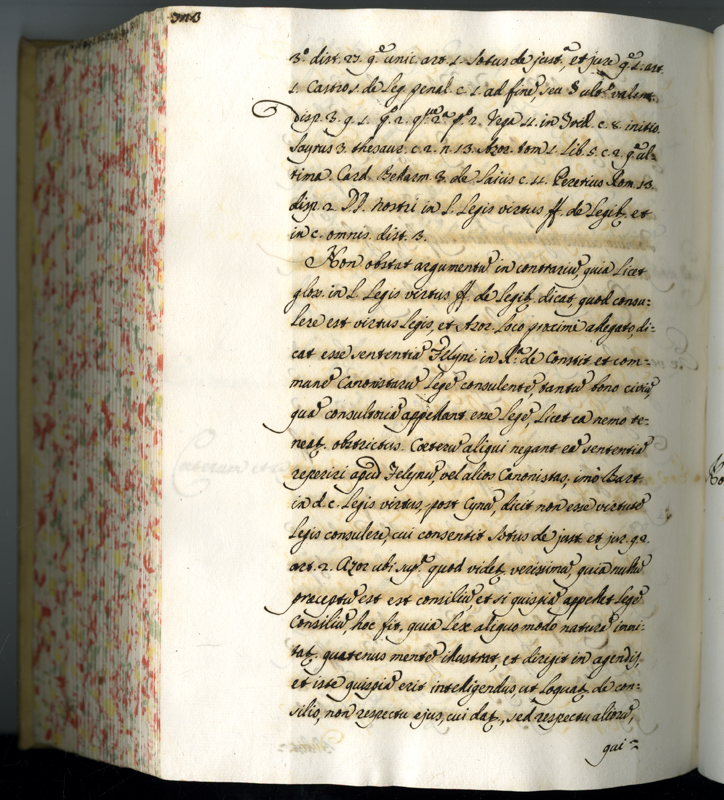 3.º dist. 27. q. unic. art. 1. Sotus de just.ª, et jure q. 1. art.
1. Castro 1. de leg. penal. c. 1. ad finẽ, seu 8 valent.
disp. 7. q. 1. 2. Vega 11. in Trid. c. 8. initio.
Sayrus 3. thesaur. c. 2. n. 13. Azor. tom 1. Lib. 5. c. 2. q. ul-
tima Card. Bellarm. 3. de Laicis c. 11. Pererius Rom. 13.
disp. 2. DD. nostri in L. Legis virtus ff. de Legib, et
in c. omnis. dist. 3.
Non obstat argumentũ in contrariũ, quia Licet
glos. in L. Legis virtus ff. de Legib. dicat, quod consu-
lere est virtus Legis, et Azor. Loco proxime allegato, di-
cat esse sententiã Felyni in de Constit. et com-
munẽ Canonistarũ Legẽ consulentẽ, tantũ bono civiũ,
quã consultoriã appellant esse Legẽ, Licet ea nemo te-
neat. obstrictus. Cæterũ aliqui negant eã sententiã
reperiri apud Felynũ, vel alios Canonistas, imò Bart.
in d. c. Legis virtus, post Cynũ, dicit non esse virtutẽ
Legis consulere, cui consentit Sotus de just. et jur. q. 2.
art. 2. Azor ubi sup.ª quod videt. verissimũ, quia nullũ
præceptũ est est consiliũ, et si quispiã appellet Legẽ
Consiliũ, hoc fit, quia Lex aliquo modo naturã imi-
tat. quatenus mentẽ illustrat, et dirigit in agendis,
et iste quispiã erit intelligendus, ut loquat. de con-
silio, non respectu ejus, cui dat., sed respectu aliorũ,
qui